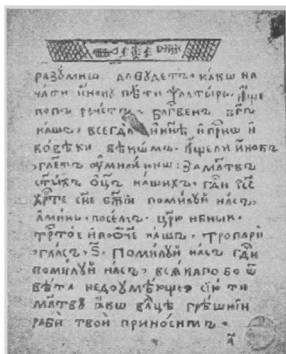 да бꙋдетъ, како на
чати иноку пѣти ѱалтырь. аще
попъ речетъ. блгвенъ бг҃ъ
нашъ, всегда и нн҃ѣ и прⷭ҇но и
во вѣки вѣкомъ. аще ли инокъ
За млтвъ
ст҃ыхъ оц҃ъ нашихъ. гдⷭ҇и іс҃е
хрⷭ҇те сн҃е бж҃іи помилуй насъ
аминь. посемъ. цр҃ю нбⷭ҇ныи.
трⷭ҇тое нашъ. тропари
гласъ, ѕ҃. Помилуй насъ гдⷭ҇и
помилуй насъ, всякаго бо ѿ
вѣта недоумѣюще. сію ти
млтву ꙗко влⷣце грѣшніи
раби твои приносимъ.
а҃